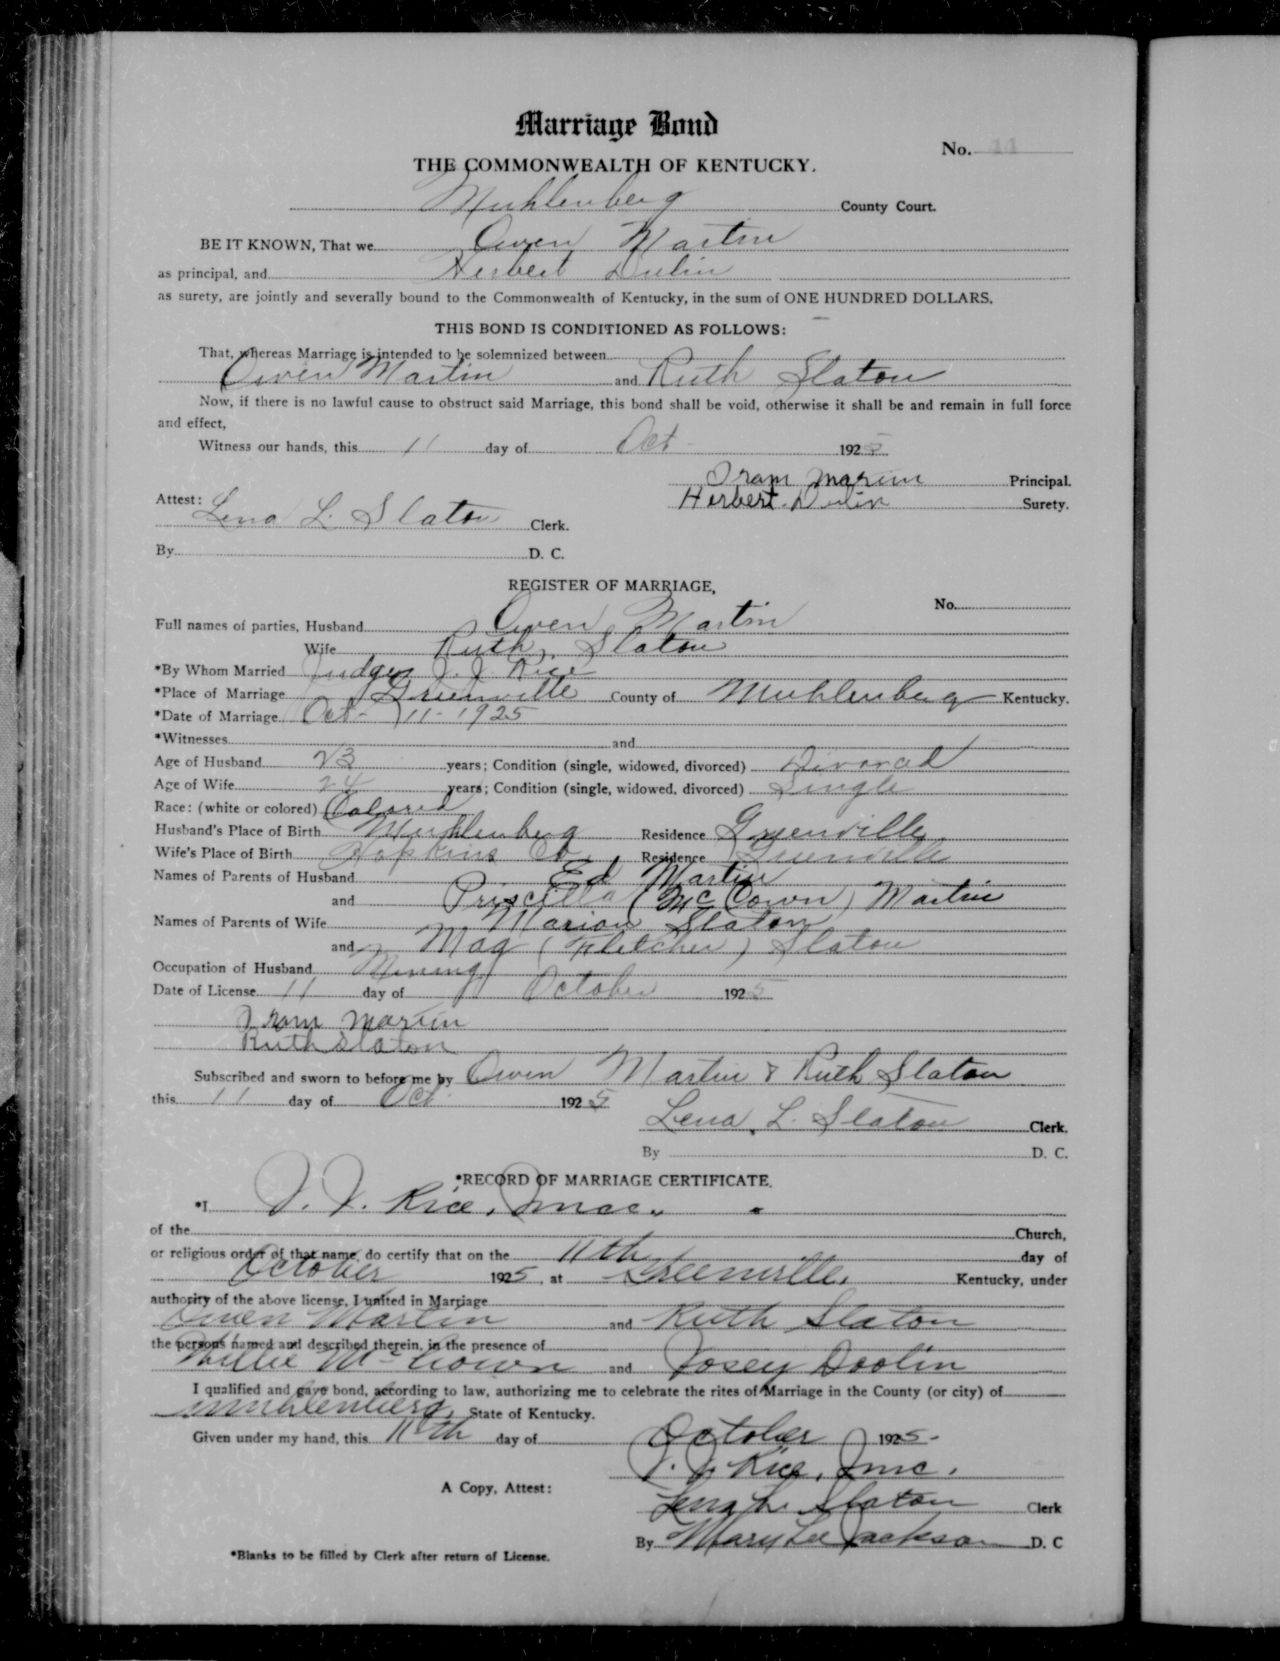 Marriage Bond
No. 44
THE COMMONWEALTH OF KENTUCKY.
Muhlenberg County Court.
BE IT KNOWN, That we Owen Martin
as principal, and Herbert Dulin
as surety, are jointly and severally bound to the Commonwealth of Kentucky, in the sum of ONE HUNDRED DOLLARS.
THIS BOND IS CONDITIONED AS FOLLOWS:
That, whereas Marriage is intended to be solemnized between
Owen Martin and Ruth Slaton
Now, if there is no lawful cause to obstruct said Marriage, this bond shall be void, otherwise it shall be and remain in full force
and effect,
Witness our hands, this 11 day of Oct 1925
Martin Principal.
Herbert Dulin Surety.
Attest: Lena L. Slaton Clerk.
By D. C.
REGISTER OF MARRIAGE,
No.
Full names of parties, Husband Owen Martin
Wife Ruth Slaton
*By Whom Married Judge J. J. Rice
*Place of Marriage Greenville County of Muhlenberg Kentucky.
*Date of Marriage Oct - 11 - 1925
*Witnesses and
Age of Husband 23 years; Condition (single, widowed, divorced) Divorced
Age of Wife 24 years; Condition (single, widowed, divorced) Single
Race: (white or colored) Colored
Husband's Place of Birth Muhlenberg Residence Greenville
Wife's Place of Birth Hopkins Co Residence Greenville
Names of Parents of Husband Ed Martin
and Priscilla (McCown) Martin
Names of Parents of Wife Marion Slaton
and Mag (Fletcher) Slaton
Occupation of Husband Mining
Date of License 11 day of October 1925
Martin
Ruth Slaton
Subscribed and sworn to before me by Owen Martin & Ruth Slaton
this 11 day of Oct 1925
Lena L. Slaton Clerk.
By D. C.
*RECORD OF MARRIAGE CERTIFICATE.
*I J. J. Rice, Jmcc.
of the Church,
or religious order of that name, do certify that on the 11th day of
October 1925, at Greenville, Kentucky, under
authority of the above license, I united in Marriage
Owen Martin and Ruth Slaton
the persons named and described therein, in the presence of
Willie McCown and Josey Doolin
I qualified and gave bond, according to law, authorizing me to celebrate the rites of Marriage in the County (or city) of
Muhlenberg, State of Kentucky.
Given under my hand, this 11th day of October 1925.
J. J. Rice, Jmc.
A Copy, Attest:
Lena L. Slaton Clerk
By Mary Lee Jackson D. C
*Blanks to be filled by Clerk after return of License.